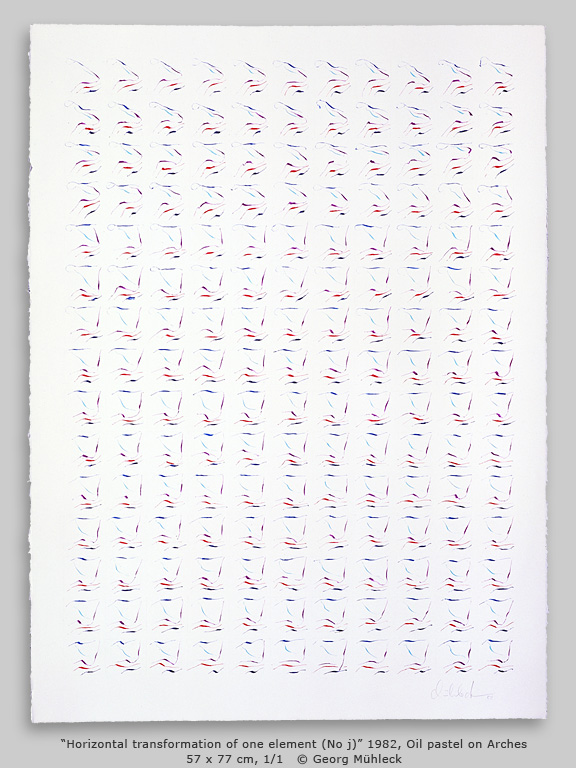 “Horizontal transformation of one element (No j)” 1982, Oil pastel on Arches
57 x 77 cm, 1/1 © Georg Mühleck